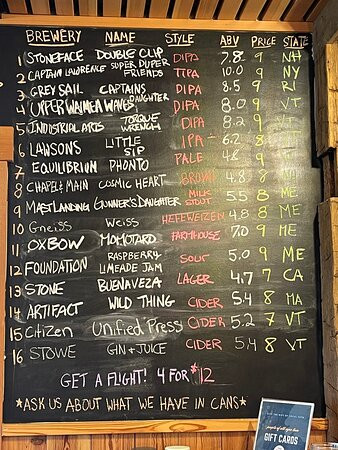 BREWERY NAME STYLE ABV PRICE STATE
1 STONEFACE DOUBLE CLIP DIPA 7.8 9 NH
2 CAPTAIN LAWRENCE SUPER DUPER FRIENDS TIPA 10.0 9 NY
3 GREY SAIL CAPTAINS DAUGHTER DIPA 8.5 9 RI
4 UPPER WAIMEA WAVES DIPA 8.0 9 VT
5 INDUSTRIAL ARTS TORQUE WRENCH DIPA 8.2 9
6 LAWSONS LITTLE SIP IPA 6.2 8 VT
7 EQUILIBRIUM PHONTO PALE 4.8 9
8 CHAPEL & MAIN COSMIC HEART BROWN 4.8 8
9 MAST LANDING GUNNER'S DAUGHTER MILK STOUT 5.5 8 ME
10 Gneiss Weiss HEFEWEIZEN 4.8 8 ME
11 OXBOW MOMOTARO FARMHOUSE 7.0 9 ME
12 FOUNDATION RASPBERRY LIMEADE JAM SOUR 5.0 9 ME
13 STONE BUENAVEZA LAGER 4.7 7 CA
14 ARTIFACT WILD THING CIDER 5.4 8 MA
15 Citizen Unified Press CIDER 5.2 7 VT
16 STOWE GIN + JUICE CIDER 5.4 8 VT
GET A FLIGHT! 4 FOR $12
*ASK US ABOUT WHAT WE HAVE IN CANS*
GIFT CARDS